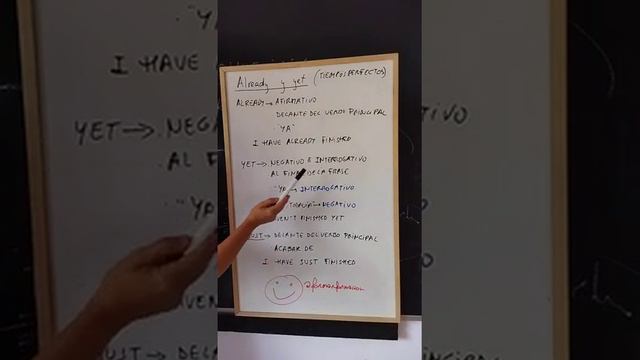 Already y yet (TIEMPOS PERFECTOS)
ALREADY → AFIRMATIVO
DELANTE DEL VERBO PRINCIPAL
"YA"
I HAVE ALREADY FINISHED
YET → NEGATIVO E INTERROGATIVO
AL FINAL DE LA FRASE
"YA → INTERROGATIVO
→ NEGATIVO
FINISHED YET
→ DELANTE DEL VERBO PRINCIPAL
ACABAR DE
I HAVE JUST FINISHED